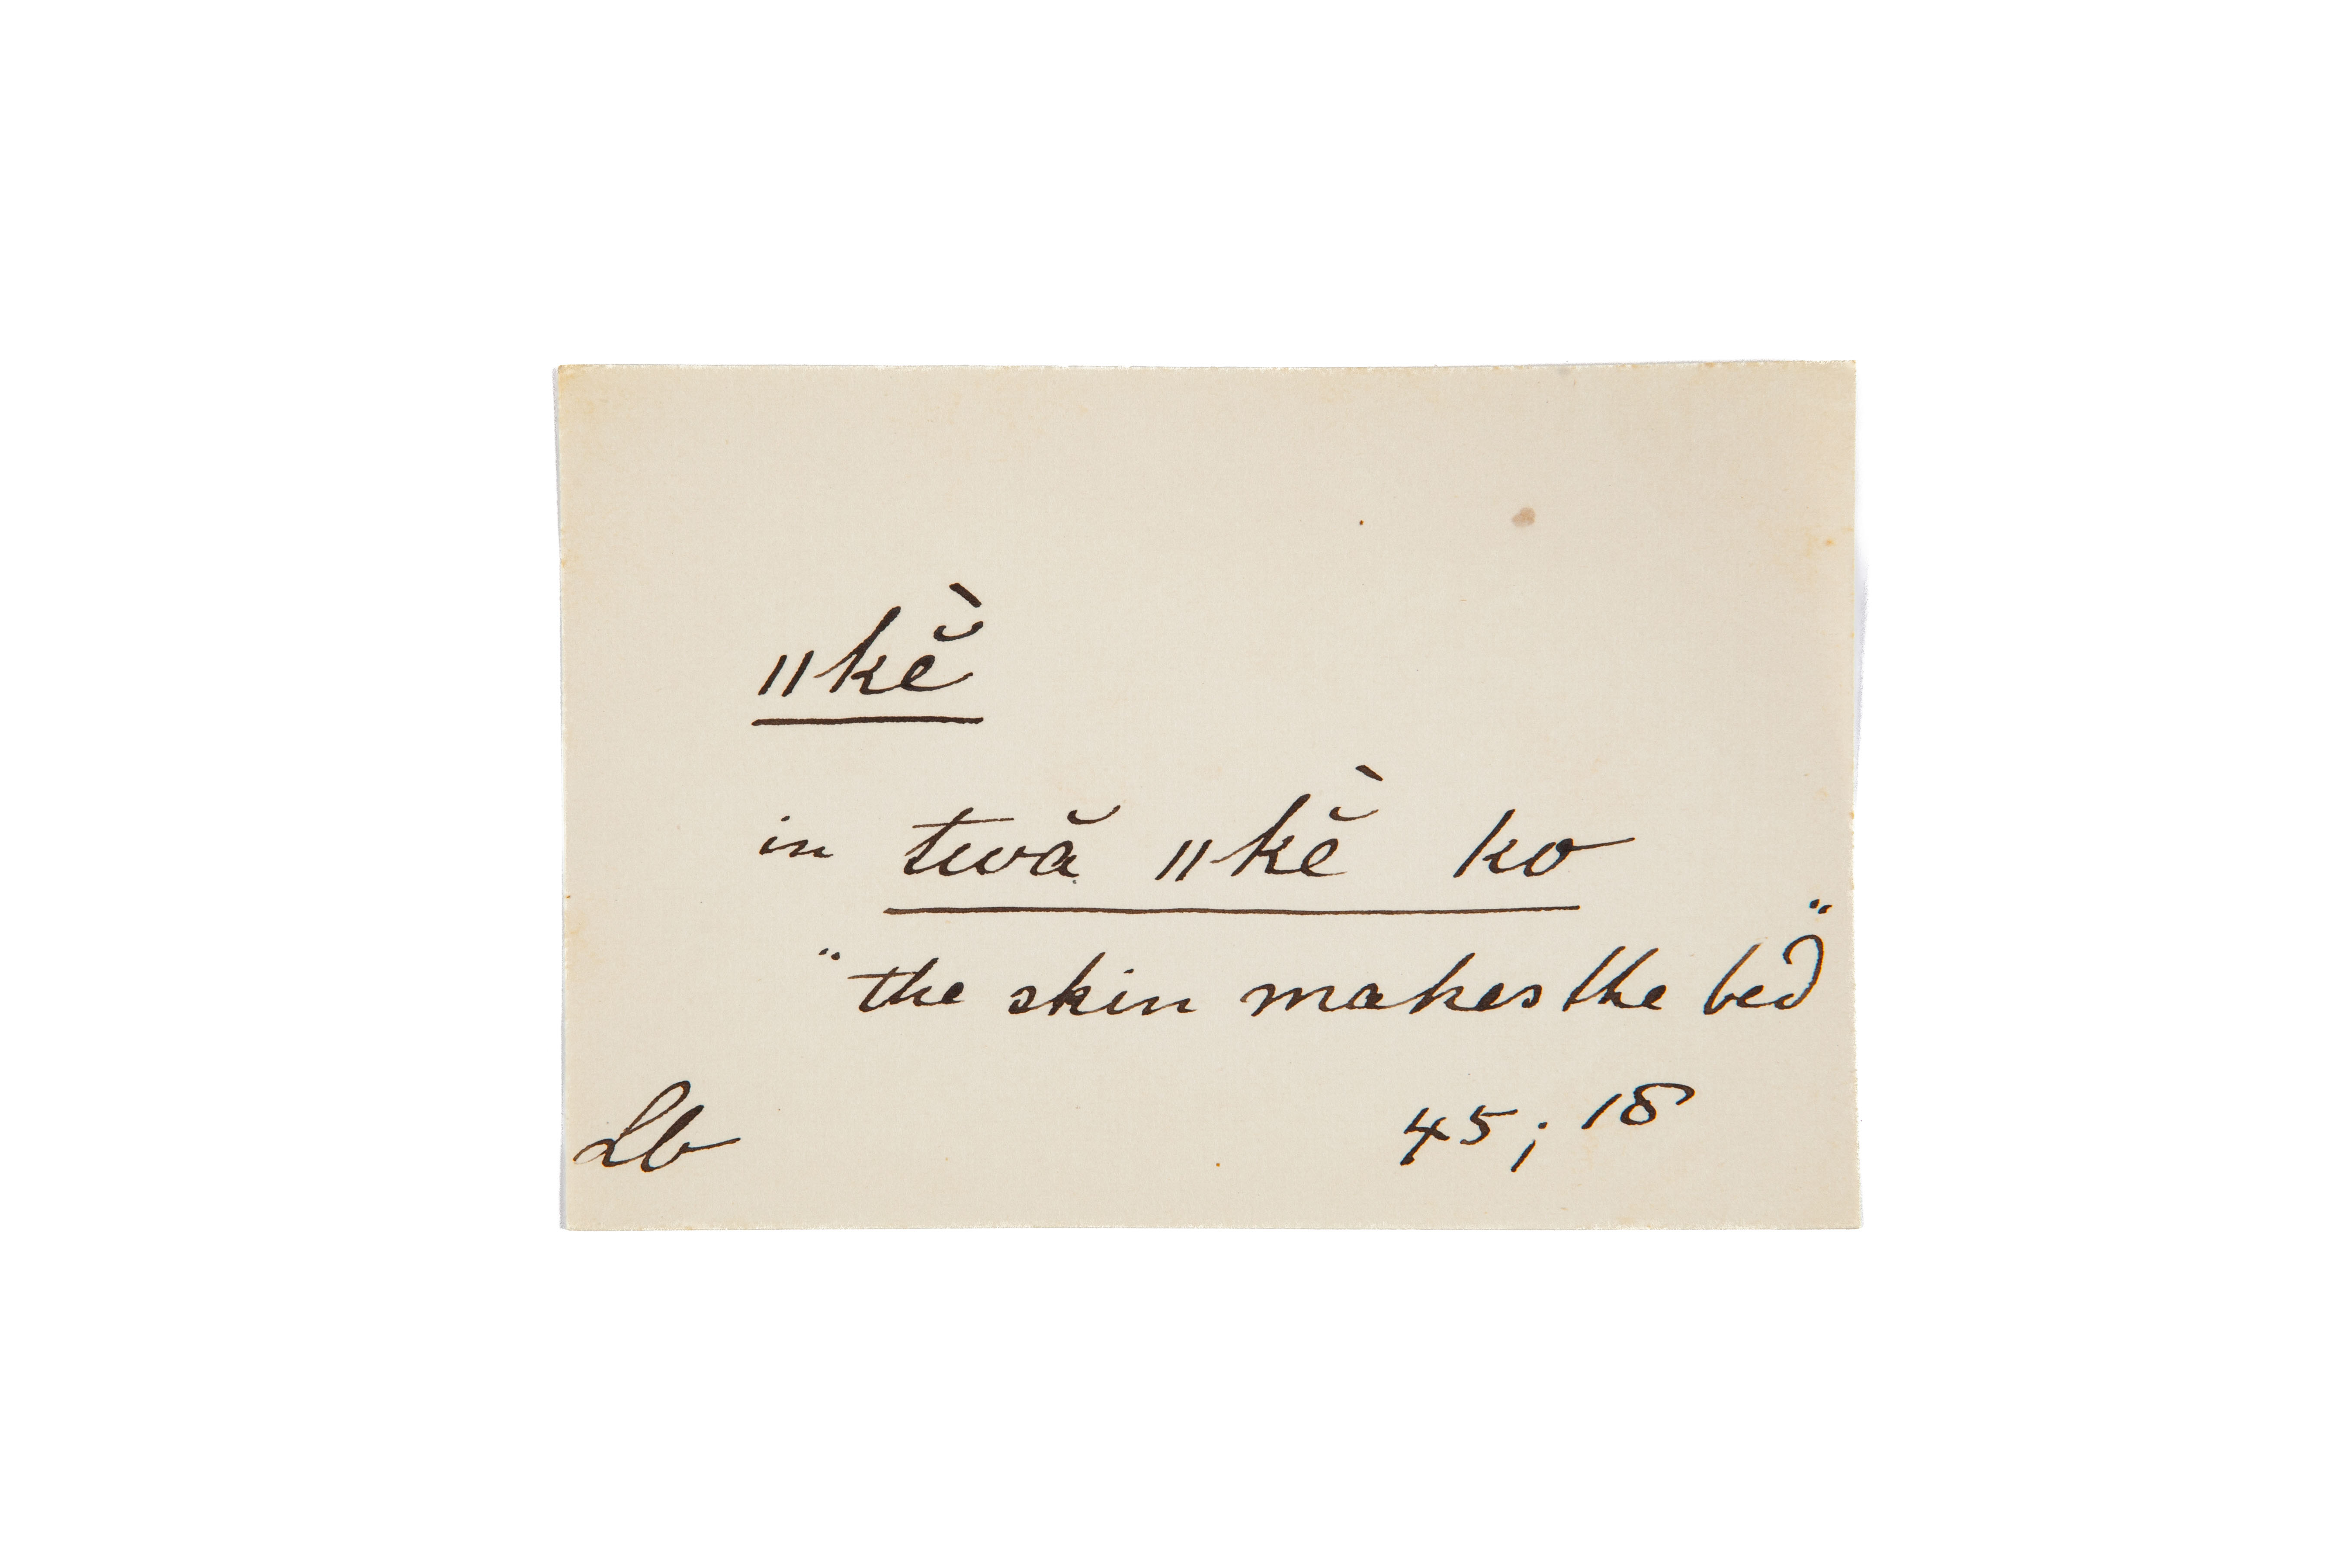 ǁkĕ̀
in twă ǁkĕ̀ ko
"the skin makes the bed"
Lb 45; 18